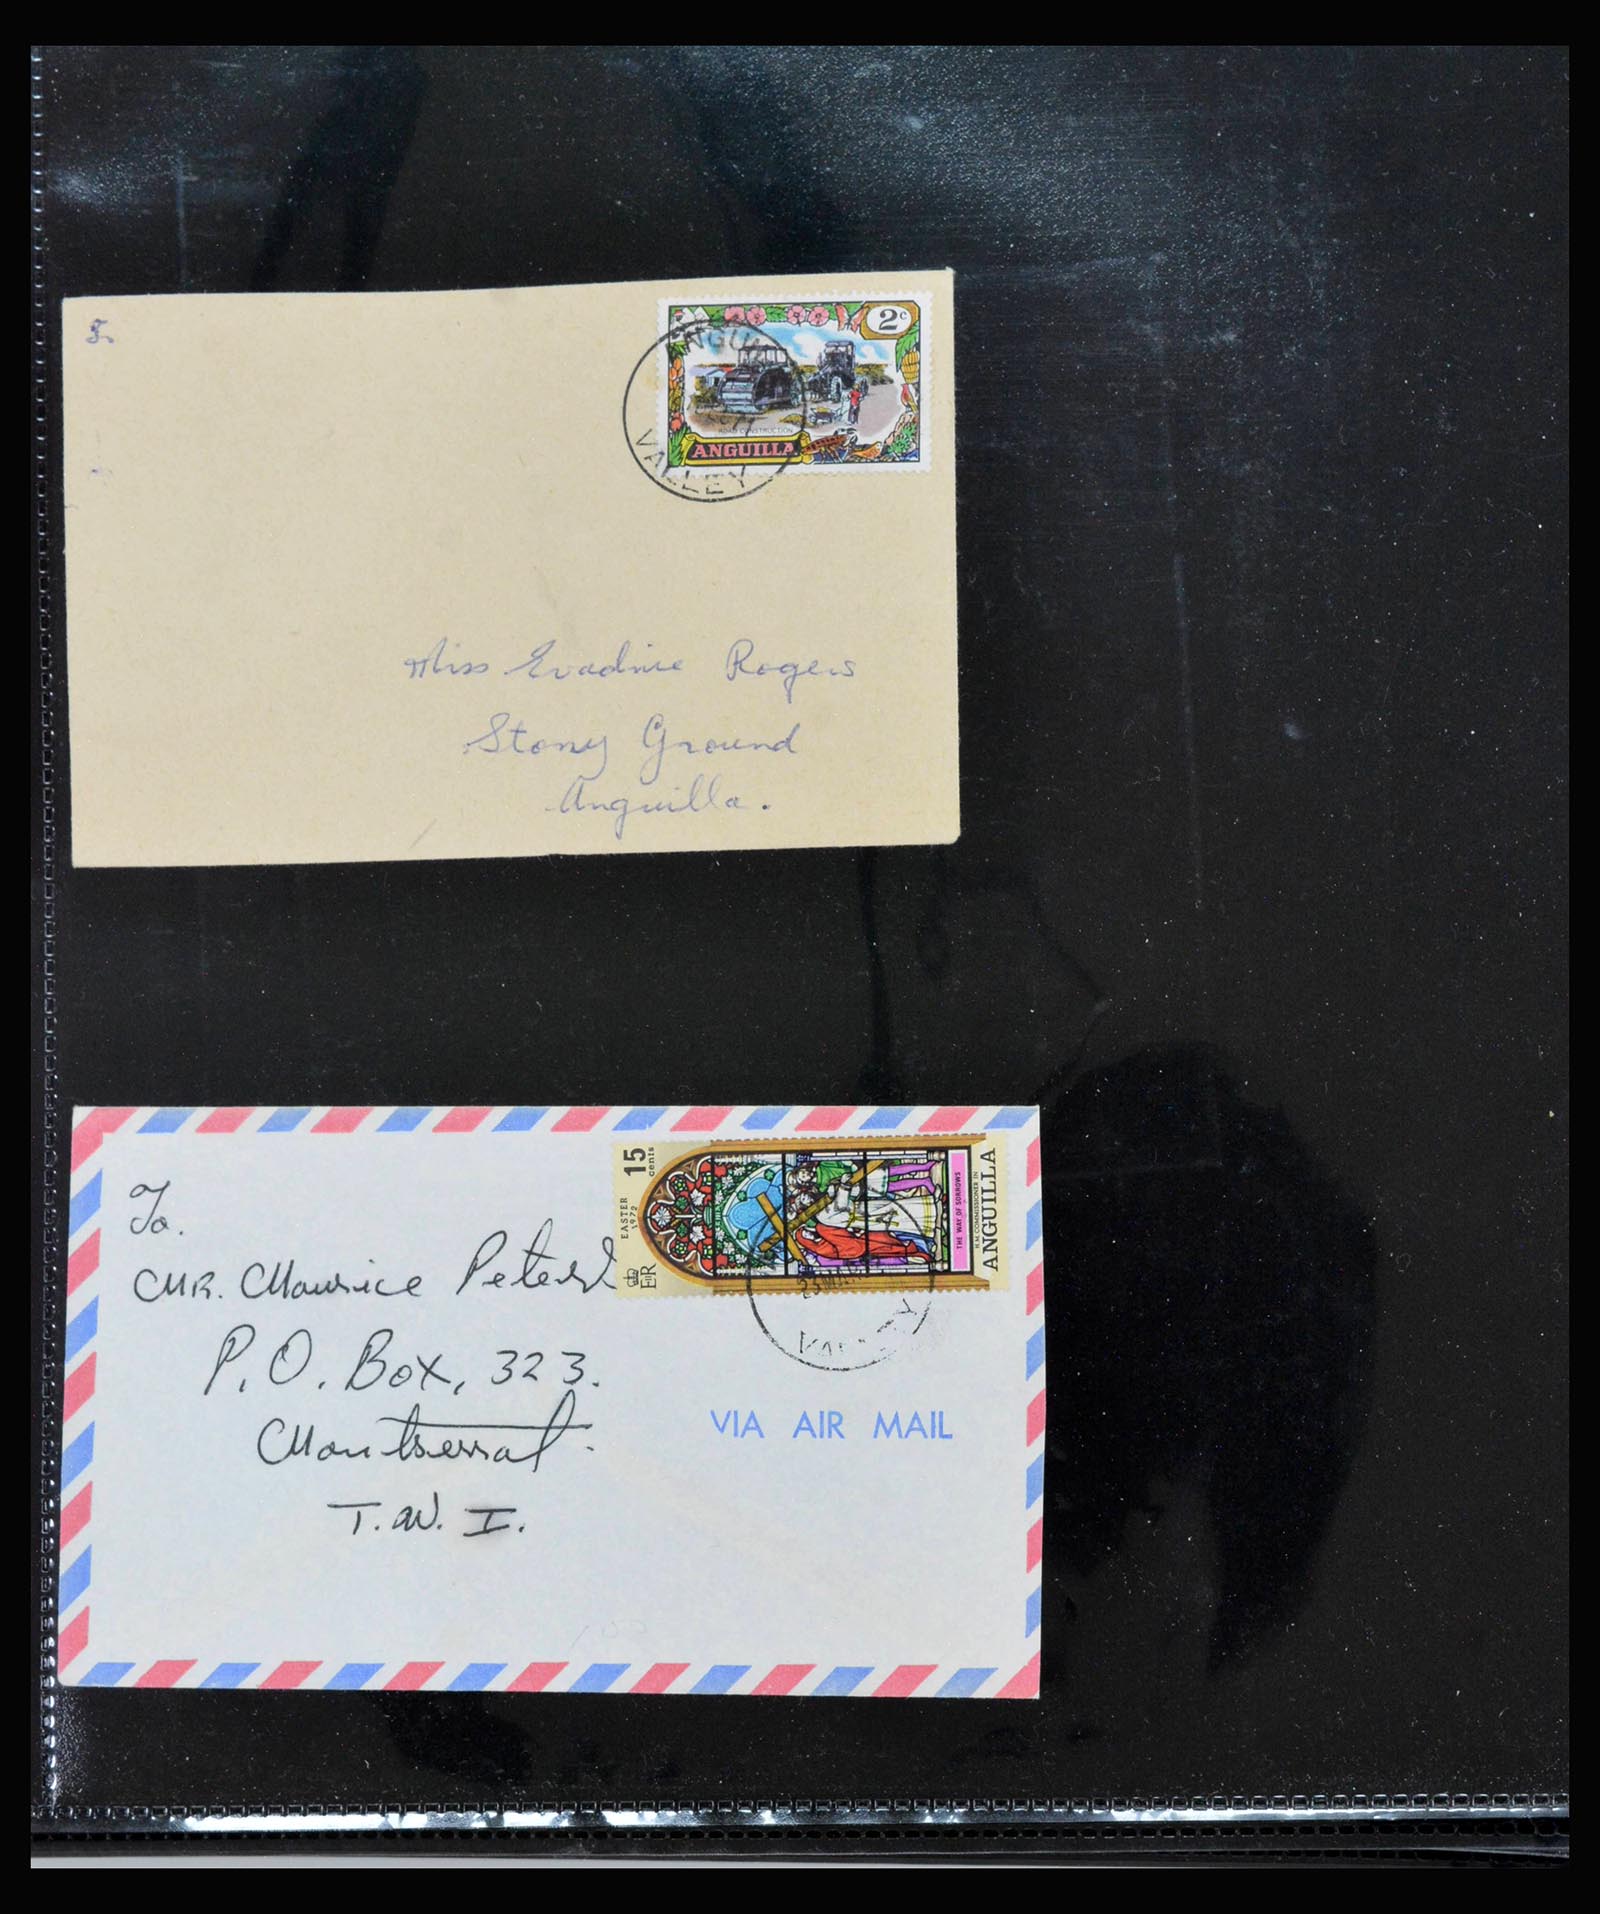 2c
ROAD CONSTRUCTION
ANGUILLA
VALLEY
Miss Evadnie Rogers
Stony Ground
Anguilla.
To.
MR. Maurice Peters
P.O. Box, 323.
Montserrat.
T.W.I.
15
cents
EASTER
1972
ER
THE WAY OF SORROWS
H.M. COMMISSIONER IN
ANGUILLA
VALLEY
VIA AIR MAIL